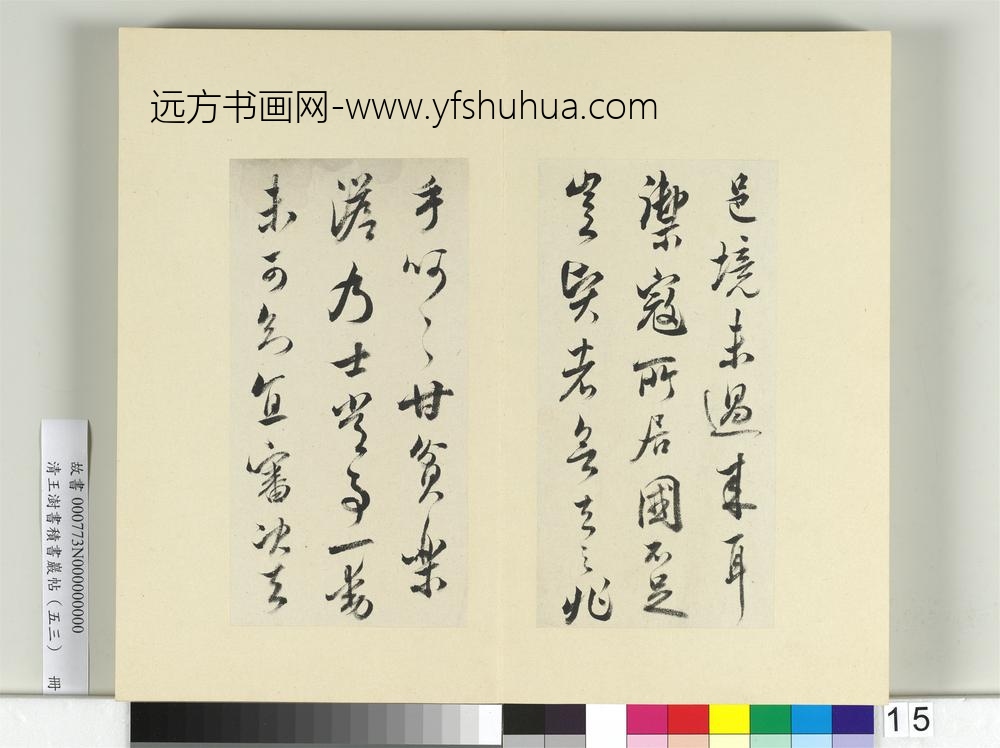 远方书画网-www.yfshuhua.com
邑境未過來耳
禦寇所居國不足
豈賢者去之兆
乎呵〻甘貧樂
澹乃士常事一動
未可宜審決去
故書 000773N000000000
清王澍書積書巖帖（五三） 冊
15